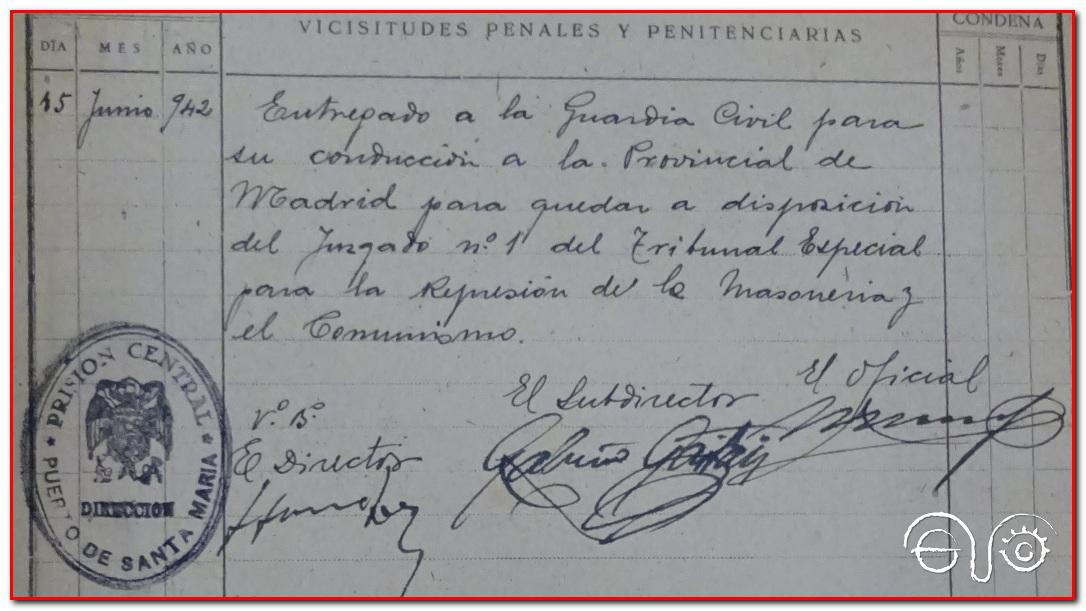 VICISITUDES PENALES Y PENITENCIARIAS
CONDENA
DÍA MES AÑO
Años Meses Días
15 Junio 942 Entregado a la Guardia Civil para
su conducción a la Provincial de
Madrid para quedar a disposición
del Juzgado nº 1 del Tribunal Especial
para la Represión de la Masoneria y
el Comunismo.
El Subdirector El Oficial
Vº. Bº.
E Director
PRISION CENTRAL
DIRECCION
PUERTO DE SANTA MARIA